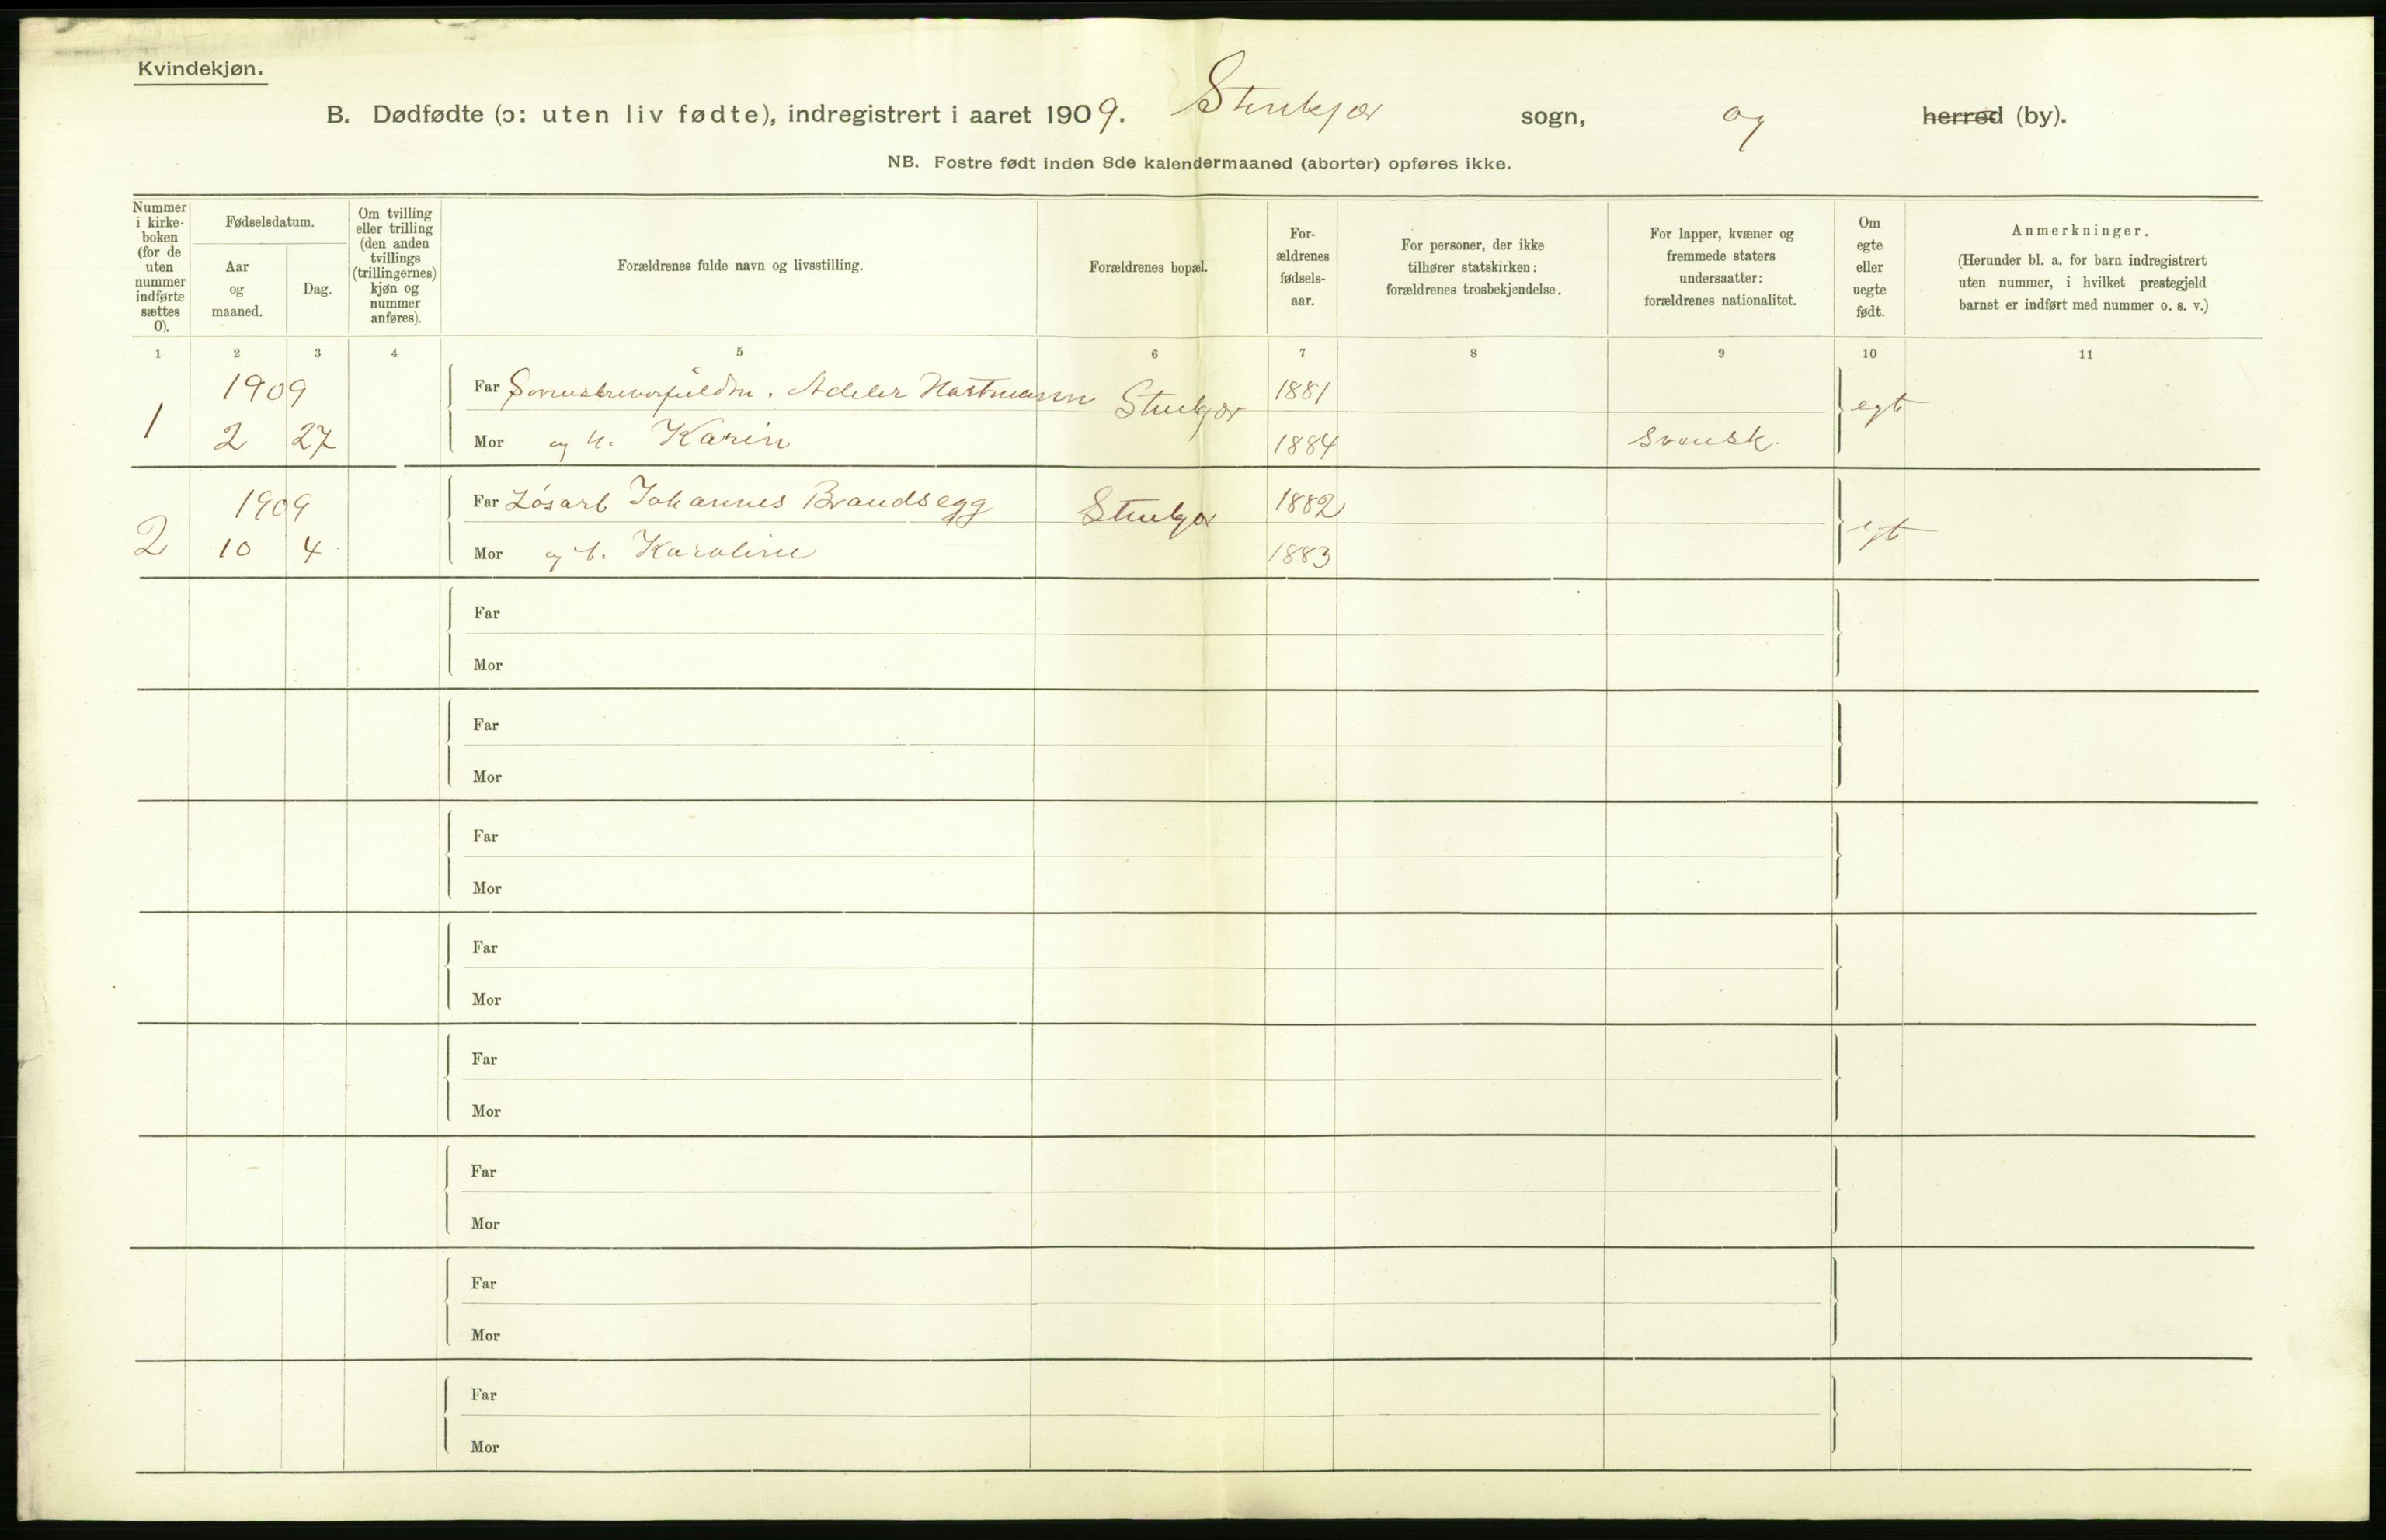 Kvindekjøn.
B. Dødfødte (ɔ: uten liv fødte), indregistrert i aaret 1909. Stenkjær sogn, og herred (by).
NB. Fostre født inden 8de kalendermaaned (aborter) opføres ikke.
Nummer i kirke-boken (for de uten nummer indførte sættes 0).
Fødselsdatum.
Aar og maaned.
Dag.
Om tvilling eller trilling (den anden tvillings (trillingernes) kjøn og nummer anføres).
Forældrenes fulde navn og livsstilling.
Forældrenes bopæl.
For-ældrenes fødsels-aar.
For personer, der ikke tilhører statskirken: forældrenes trosbekjendelse.
For lapper, kvæner og fremmede staters undersaatter: forældrenes nationalitet.
Om egte eller uegte født.
Anmerkninger.
(Herunder bl. a. for barn indregistrert uten nummer, i hvilket prestegjeld barnet er indført med nummer o. s. v.)
1 2 3 4 5 6 7 8 9 10 11
1 1909 Far Adeler Hartmann Stenkjær 1881 egte
2 27 Mor og h. Karin 1884 svensk.
2 1909 Far Løsarb Johannes Brandsegg Stenkjær 1882 egte
10 4 Mor og h. Karoline 1883
Far
Mor
Far
Mor
Far
Mor
Far
Mor
Far
Mor
Far
Mor
Far
Mor
Far
Mor